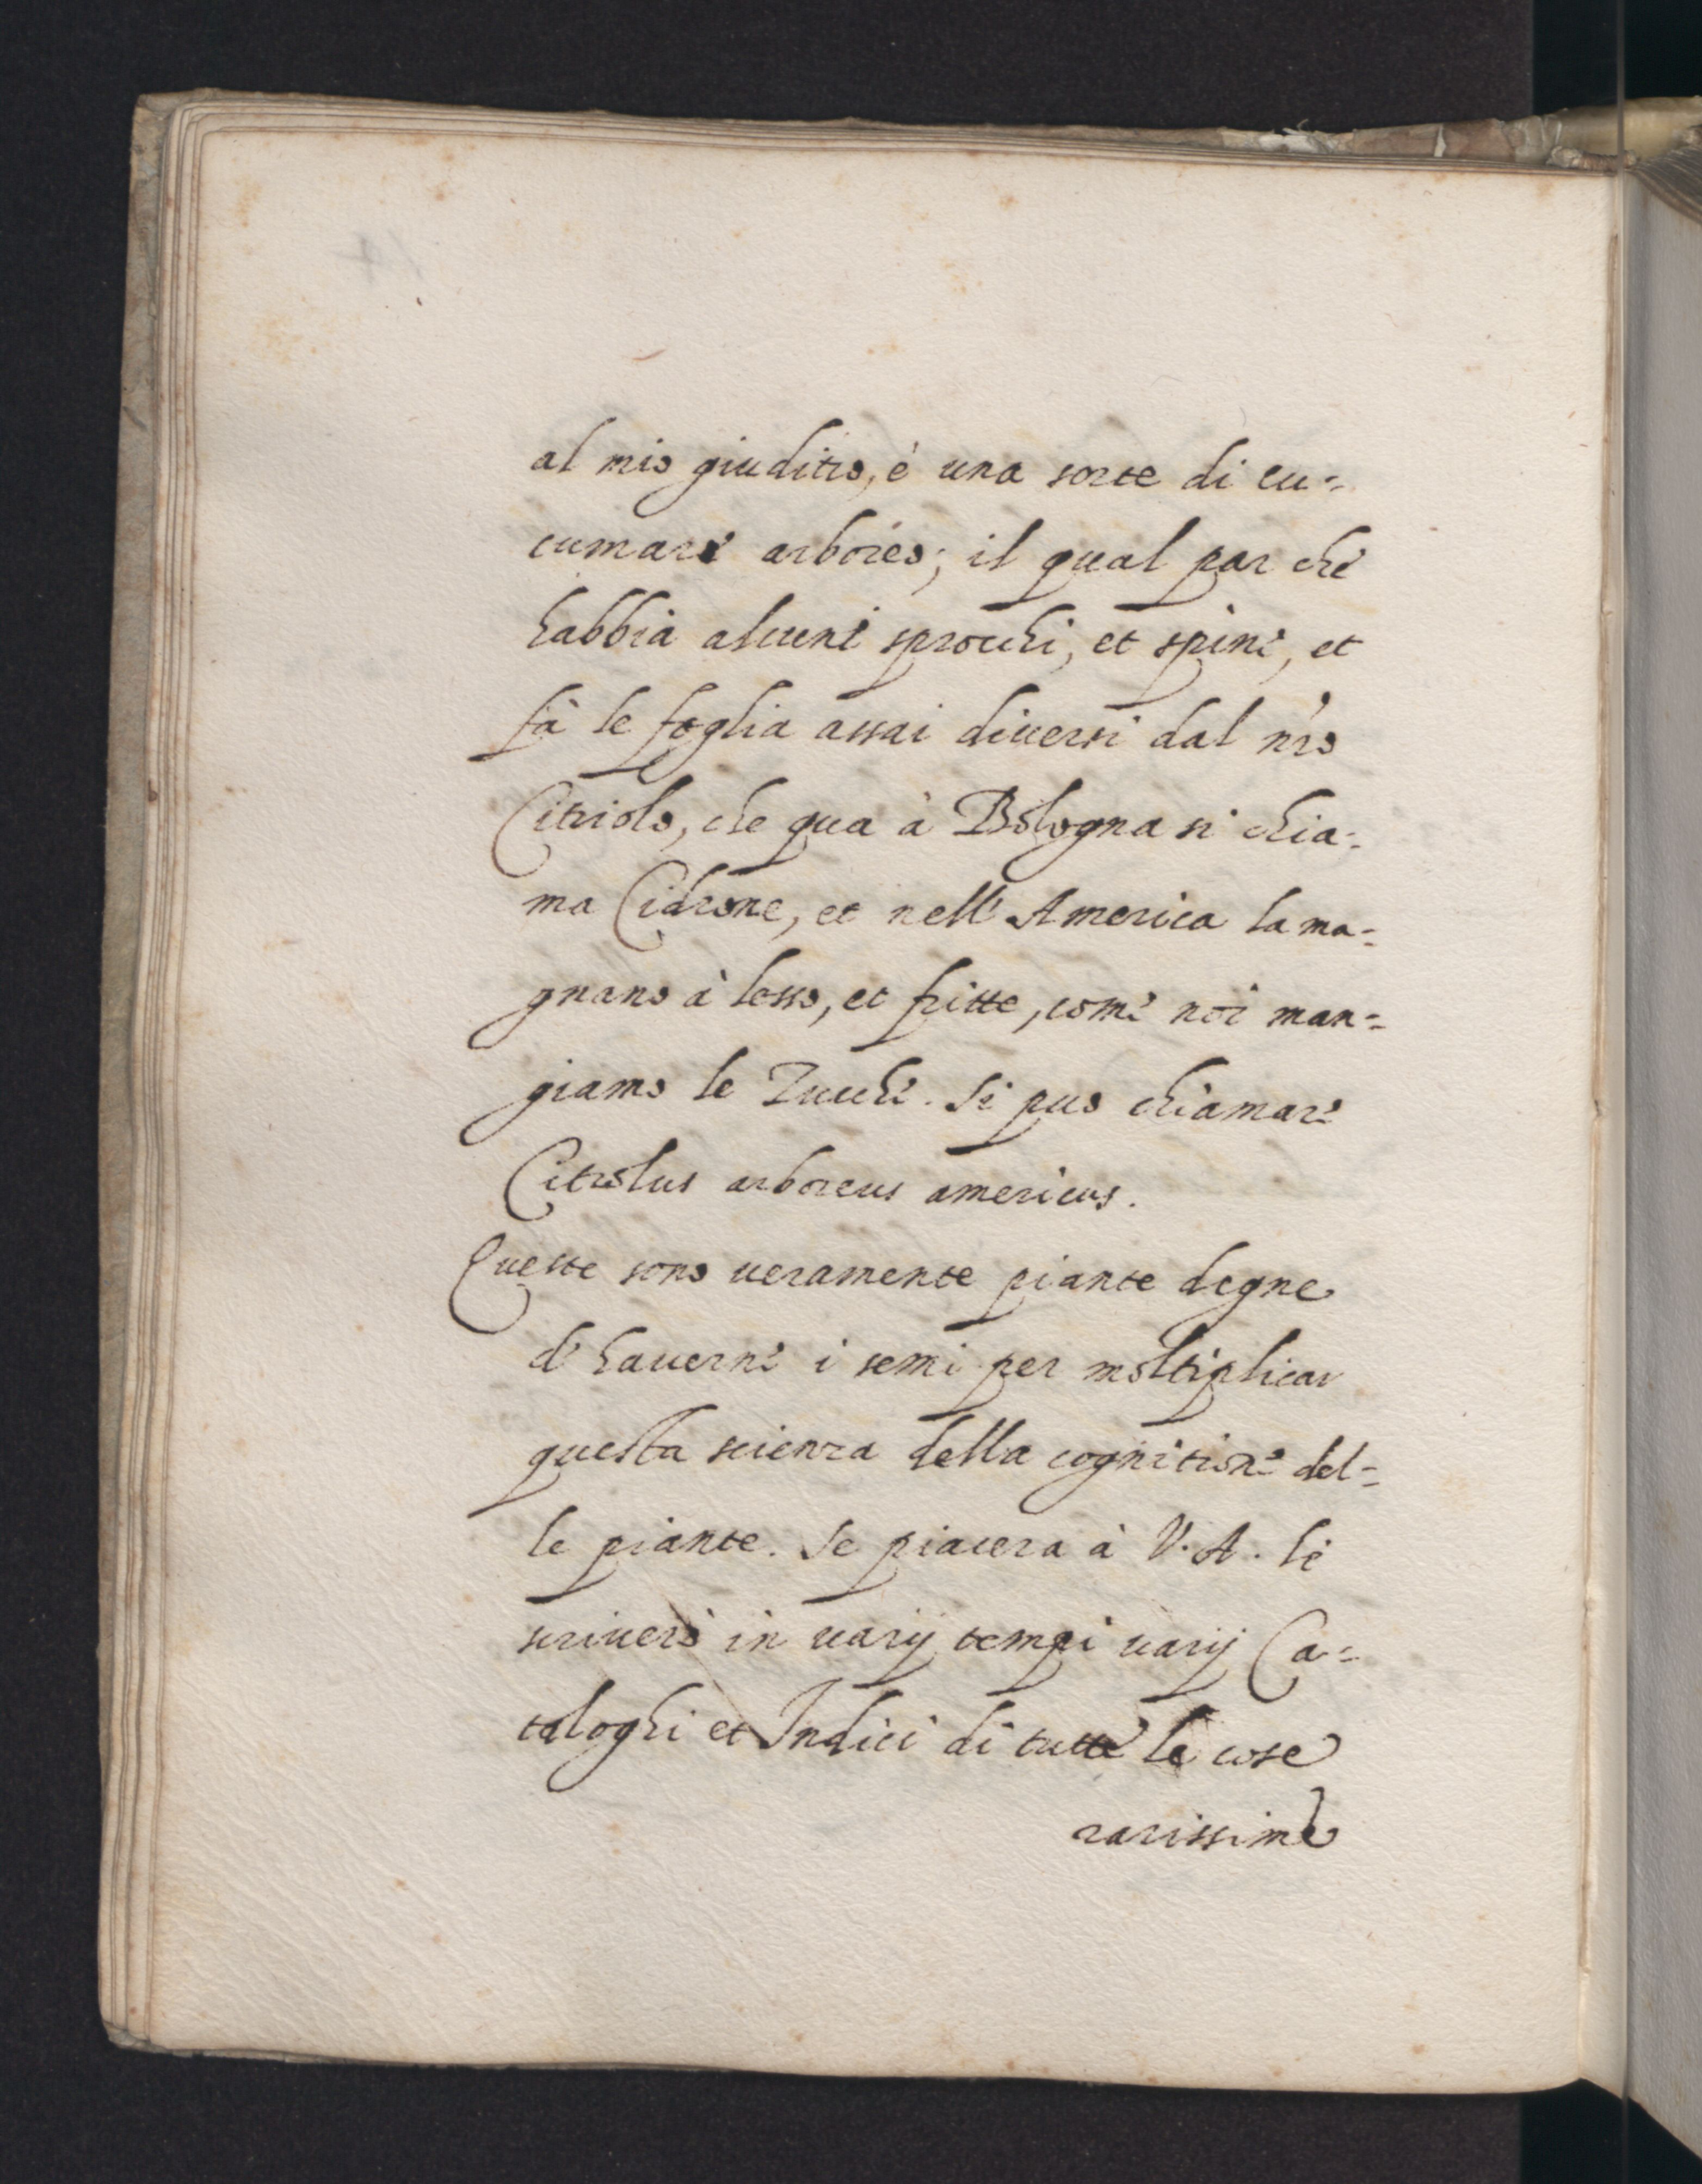 al mio giuditio, è una sorte di cu=
cumare arboreo; il qual par che
habbia alcune sprochi, et spine, et
fà le foglia assai diverse dal nro
Citriolo, che qua à Bologna si chia=
ma Cidrone, et nell' America la ma=
gnano à lesso, et fritte, come noi man=
giamo le Zucche. Si puo chiamare
Citrolus arboreus americus.
Queste sono veramente piante degne
d' haverne i semi per moltiplicar
questa scienza della cognitione del=
le piante. Se piacera à V. A. le
scriverò in varij tempi varij Ca=
taloghi et Indici di tutte le cose
rarissime